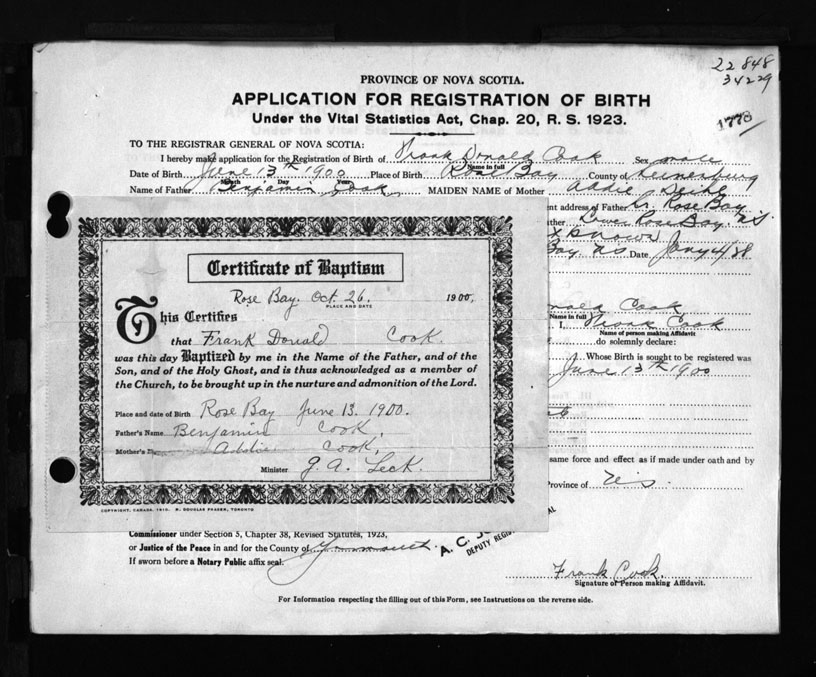 22848
34229
1778
PROVINCE OF NOVA SCOTIA.
APPLICATION FOR REGISTRATION OF BIRTH
Under the Vital Statistics Act, Chap. 20, R. S. 1923.
TO THE REGISTRAR GENERAL OF NOVA SCOTIA:
I hereby make application for the Registration of Birth of Frank Donald Cook Sex male
Name in full
Date of Birth June 13th 1900 Place of Birth Rose Bay County of Lunenburg
Month Day Year
Name of Father Benjamin Cook MAIDEN NAME of Mother Addie
nt address of Father Rose Bay
ther Lower Rose Bay N.S.
Bay N S Date Jany
nald Cook
Name in full
I, Frank Cook
Name of person making Affidavit
do solemnly declare:
Whose Birth is sought to be registered was
June 13th 1900
same force and effect as if made under oath and by
Province of N.S.
Certificate of Baptism
Rose Bay. Oct. 26. 1900,
PLACE AND DATE
This Certifies
that Frank Donald Cook.
was this day Baptized by me in the Name of the Father, and of the
Son, and of the Holy Ghost, and is thus acknowledged as a member of
the Church, to be brought up in the nurture and admonition of the Lord.
Place and date of Birth Rose Bay June 13. 1900.
Father's Name Benjamin Cook,
Mother's Cook,
Minister J. A. Leck.
COPYRIGHT, CANADA, 1910. R. DOUGLAS FRASER, TORONTO
Commissioner under Section 5, Chapter 38, Revised Statutes, 1923,
or Justice of the Peace in and for the County of Yarmouth.
If sworn before a Notary Public affix seal.
A. C.
DEPUTY REGIS
Frank Cook.
Signature of Person making Affidavit.
For Information respecting the filling out of this Form, see Instructions on the reverse side.